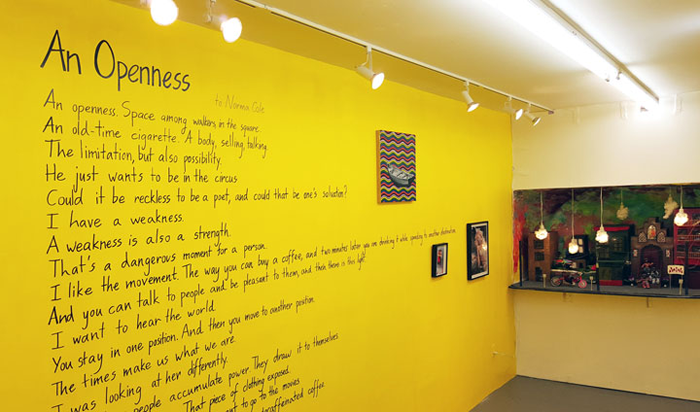 An Openness
to Norma Cole
An openness. Space among walkers in the square.
An old-time cigarette. A body, selling, talking.
The limitation, but also possibility.
He just wants to be in the circus
Could it be reckless to be a poet, and could that be one's salvation?
I have a weakness.
A weakness is also a strength.
That's a dangerous moment for a person.
I like the movement. The way you can buy a coffee, and two minutes later you are drinking it while speaking to another destination.
And you can talk to people and be pleasant to them, and then there is this light.
I want to hear the world.
You stay in one position. And then you move to another position.
The times make us what we are.
I was looking at her differently.
people accumulate power. They draw it to themselves
That piece of clothing exposed.
want to go to the movies
decaffeinated coffee